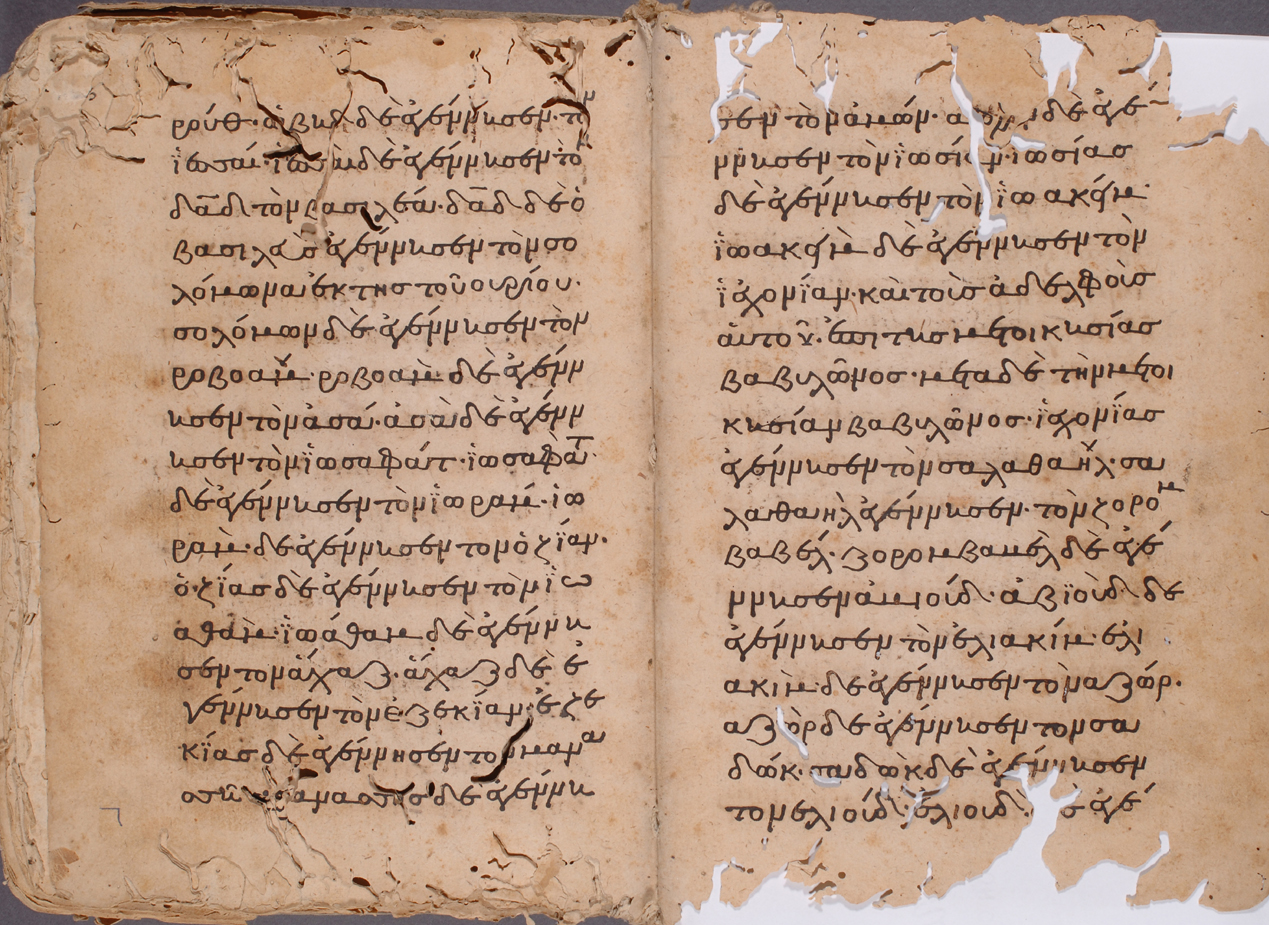 ρούθ· ὠβὴδ δὲ ἐγέννησεν τὸν
ἰεσσαί· ἰεσσαὶ δὲ ἐγέννησεν τὸν
δᾱδ τὸν βασιλέα· δᾱδ δὲ ὁ
βασιλεὺς ἐγέννησεν τὸν σο
λόμωνα ἐκ τῆς τοῦ οὐρίου·
σολόμων δὲ ἐγέννησεν τὸν
ροβοάμ· ροβοὰμ δὲ ἐγένν
ησεν τὸν ἀσά· ἀσὰ δὲ ἐγένν
ησεν τὸν ἰωσαφάτ· ἰωσαφὰτ
δὲ ἐγέννησεν τὸν ἰωράμ· ἰω
ρὰμ δὲ ἐγέννησεν τον ὀζίαν·
ὀζίας δὲ ἐγέννησεν τὸν ἰω
αθάμ· ἰωάθαμ δὲ ἐγέννη
σεν τον ἄχαζ· ἄχαζ δὲ ἐ
γέννησεν τὸν ἐζεκίαν· ἐζε
κίας δὲ ἐγέννησεν τον μανα
δὲ ἐγέννη
σεν τὸν ἀμών· δὲ ἐγέ
ννησεν τὸν ἰωσίαν· ἰωσίας
δὲ ἐγέννησεν τὸν ἰωακήμ
ἰωακὴμ δὲ ἐγέννησεν τὸν
ἰεχονίαν· καὶ τοὺς ἀδελφοὺς
αὐτοῦ· ἐπι της μετοικησίας
βαβυλῶνος· μετα δὲ τὴν μετοι
κησίαν βαβυλῶνος· ἰεχονίας
ἐγέννησεν τὸν σαλαθαήλ· σα
λαθαὴλ ἐγέννησεν· τὸν ζορομ
βαβέλ· ζορομβαβὲλ δὲ ἐγέ
ννησεν ἀμιούδ· ἀβϊοὺδ δὲ
ἐγέννησεν τὸν ἐλιακίμ· ἐλι
ακὶμ δὲ ἐγέννησεν τὸν αζώρ·
αζὼρ δὲ ἐγέννησεν τον σα
δώκ· σαδὼκ δὲ ἐγέννησεν
τον ἐλιούδ· ἐλιοὺδ ἐγέ